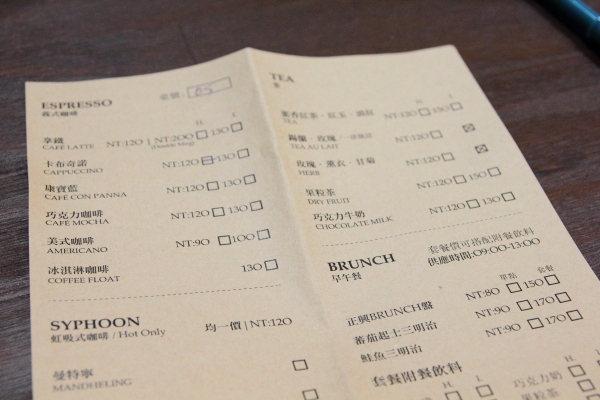 ESPRESSO
義式咖啡
桌號: 05
H. I.
拿鐵 NT:120 | NT:200 130
CAFÉ LATTE (Double Mug)
卡布奇諾 NT:120 130
CAPPUCCINO
康寶藍 NT:120 130
CAFÉ CON PANNA
巧克力咖啡 NT:120 130
CAFÉ MOCHA
美式咖啡 NT:90 100
AMERICANO
冰淇淋咖啡 130
COFFEE FLOAT
SYPHOON 均一價 | NT:120
虹吸式咖啡 / Hot Only
曼特寧
MANDHELING
TEA
茶
H. I.
紅茶 NT:120 150
TEA
玫瑰 NT:120
TEA AU LAIT
玫瑰·薰衣·甘菊 NT:120
HERB
果粒茶 NT:120 150
DRY FRUIT
巧克力牛奶 NT:120 130
CHOCOLATE MILK
BRUNCH 套餐價可搭配附餐飲料
早午餐 供應時間:09:00-13:00
單點 套餐
正興BRUNCH盤 NT:80 150
蕃茄起士三明治 NT:90 170
鮭魚三明治 NT:90 170
套餐附餐飲料
H. I. H. I.
巧克力牛奶
果粒茶